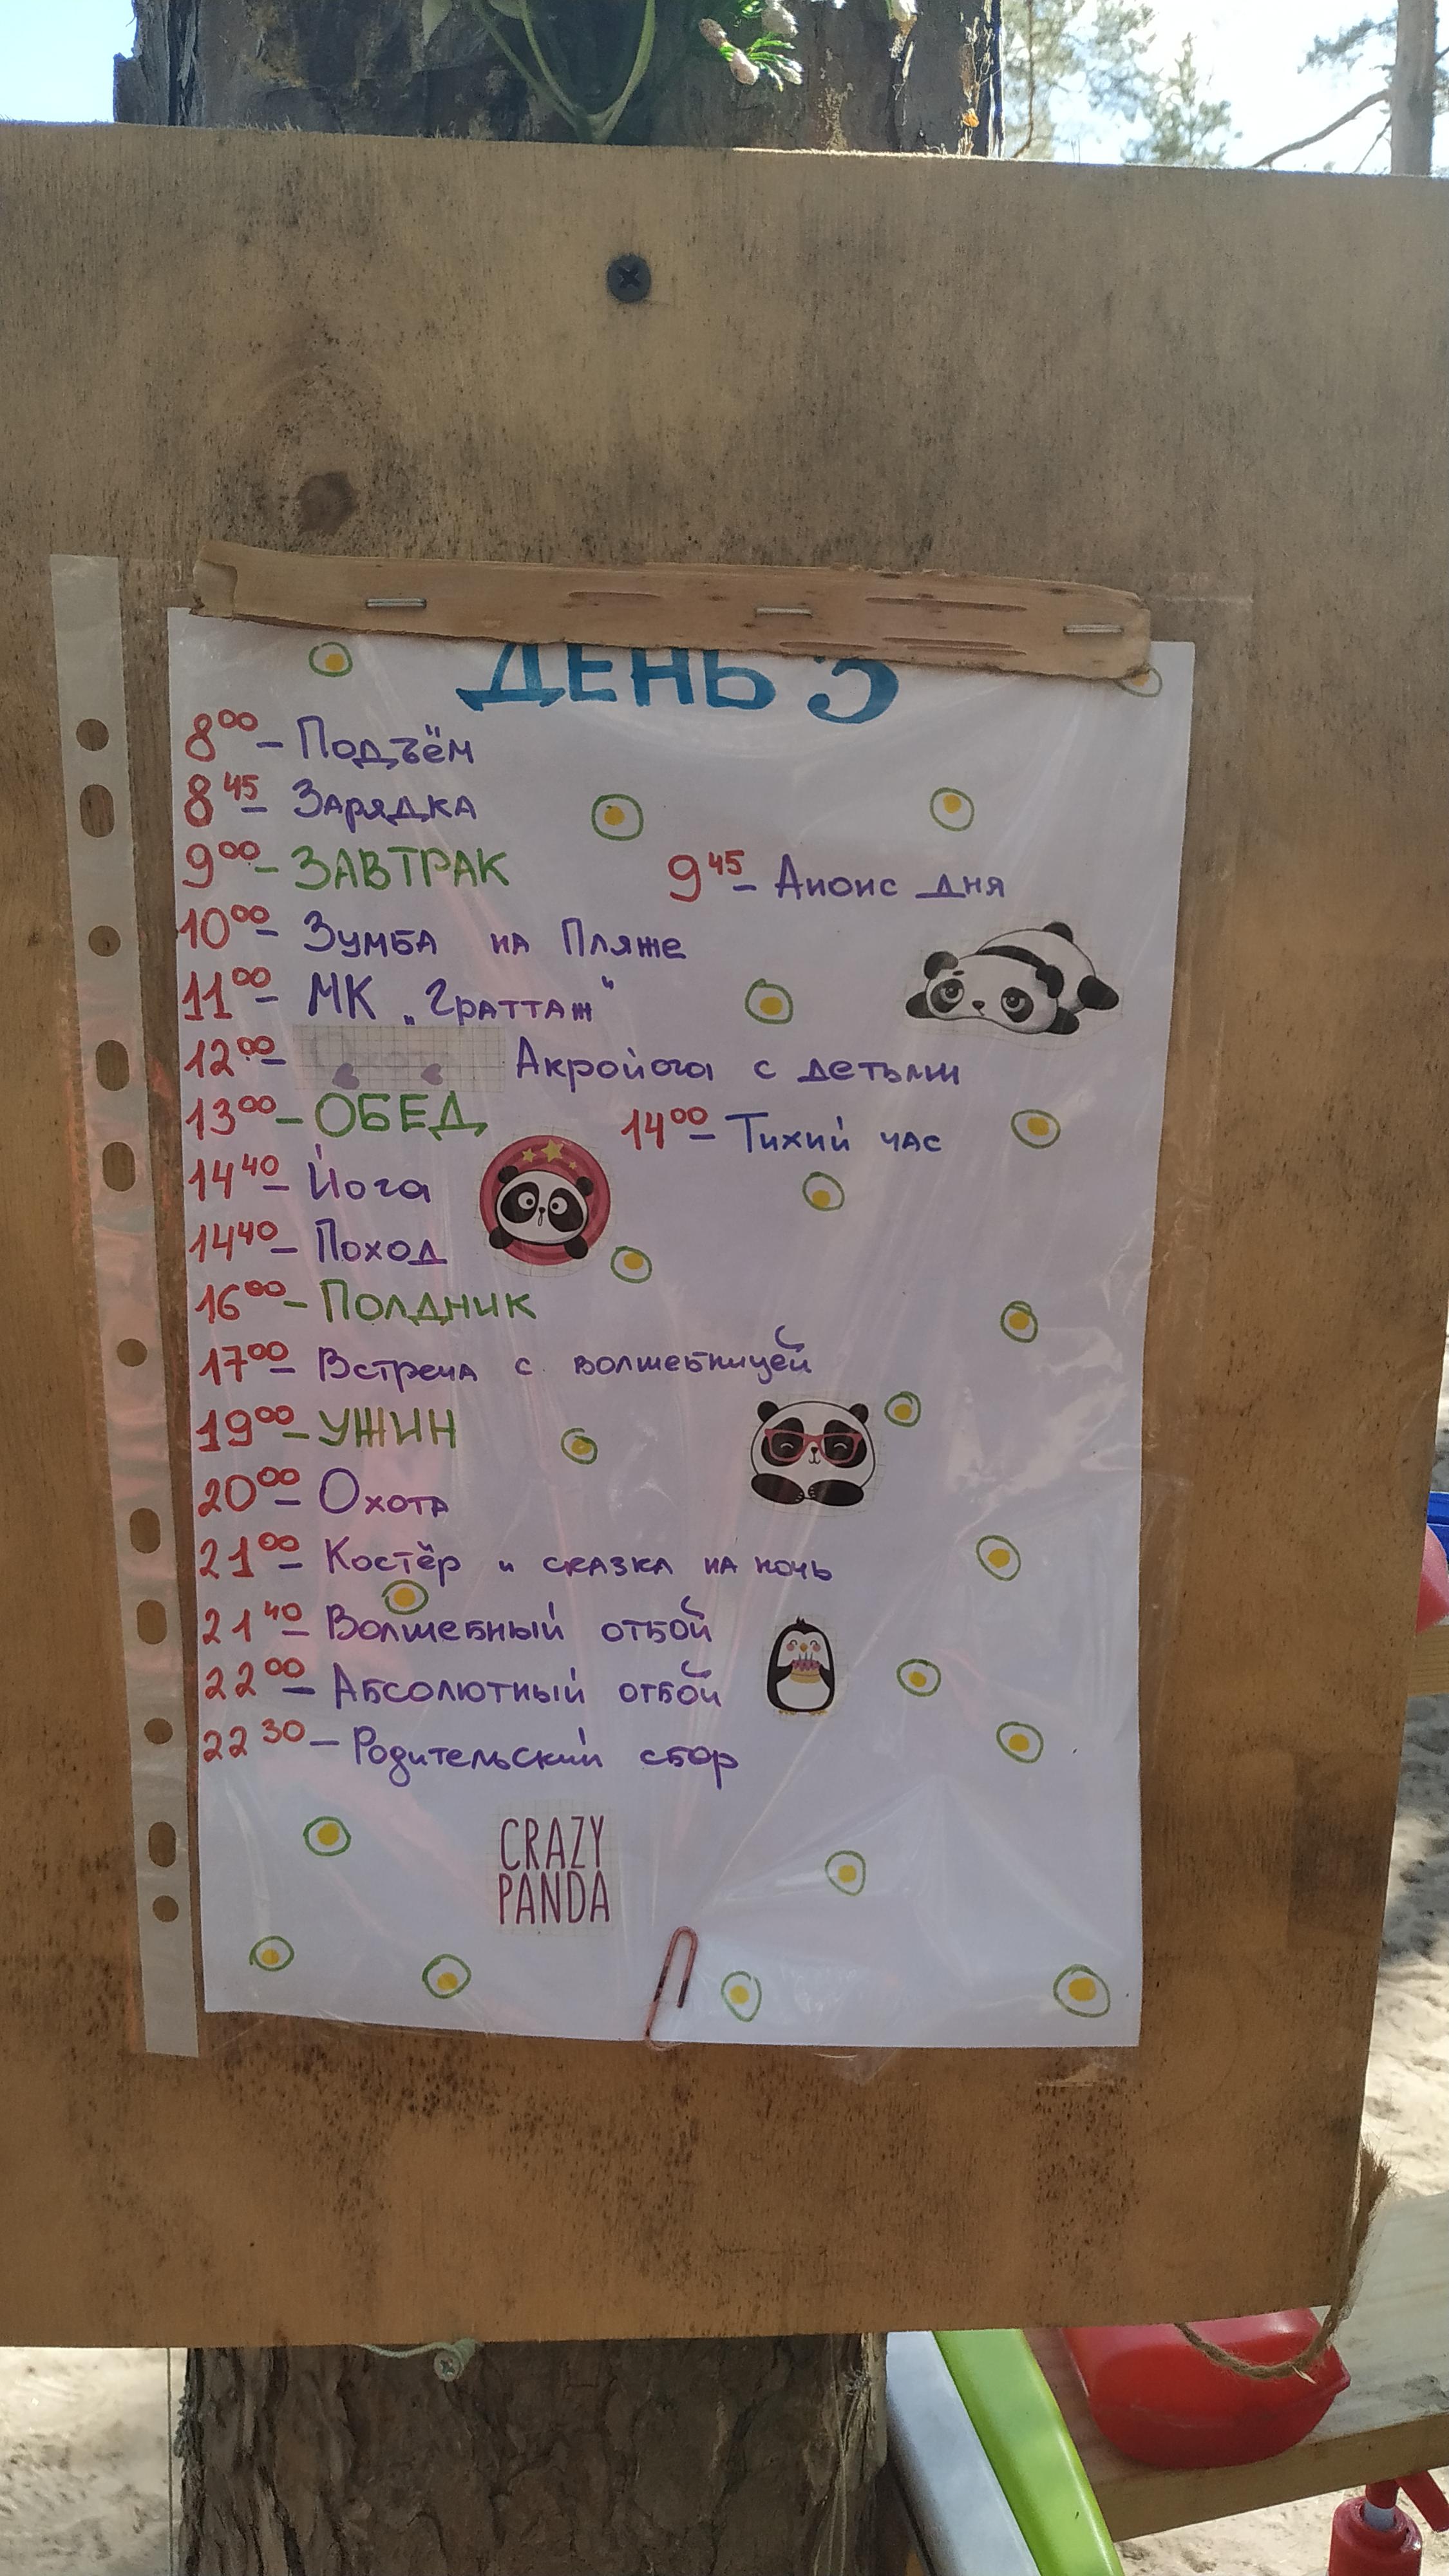 ДЕНЬ 3
8⁰⁰ – Подъём
8⁴⁵ – Зарядка
9⁰⁰ – ЗАВТРАК 9⁴⁵ – Анонс дня
10⁰⁰ – Зумба на Пляже
11⁰⁰ – МК „Граттаж"
12⁰⁰ – Акройога с детьми
13⁰⁰ – ОБЕД 14⁰⁰ – Тихий час
14⁴⁰ – Йога
14⁴⁰ – Поход
16⁰⁰ – Полдник
17⁰⁰ – Встреча с волшебницей
19⁰⁰ – УЖИН
20⁰⁰ – Охота
21⁰⁰ – Костёр и сказка на ночь
21⁴⁰ – Волшебный отбой
22⁰⁰ – Абсолютный отбой
22³⁰ – Родительский сбор
CRAZY
PANDA